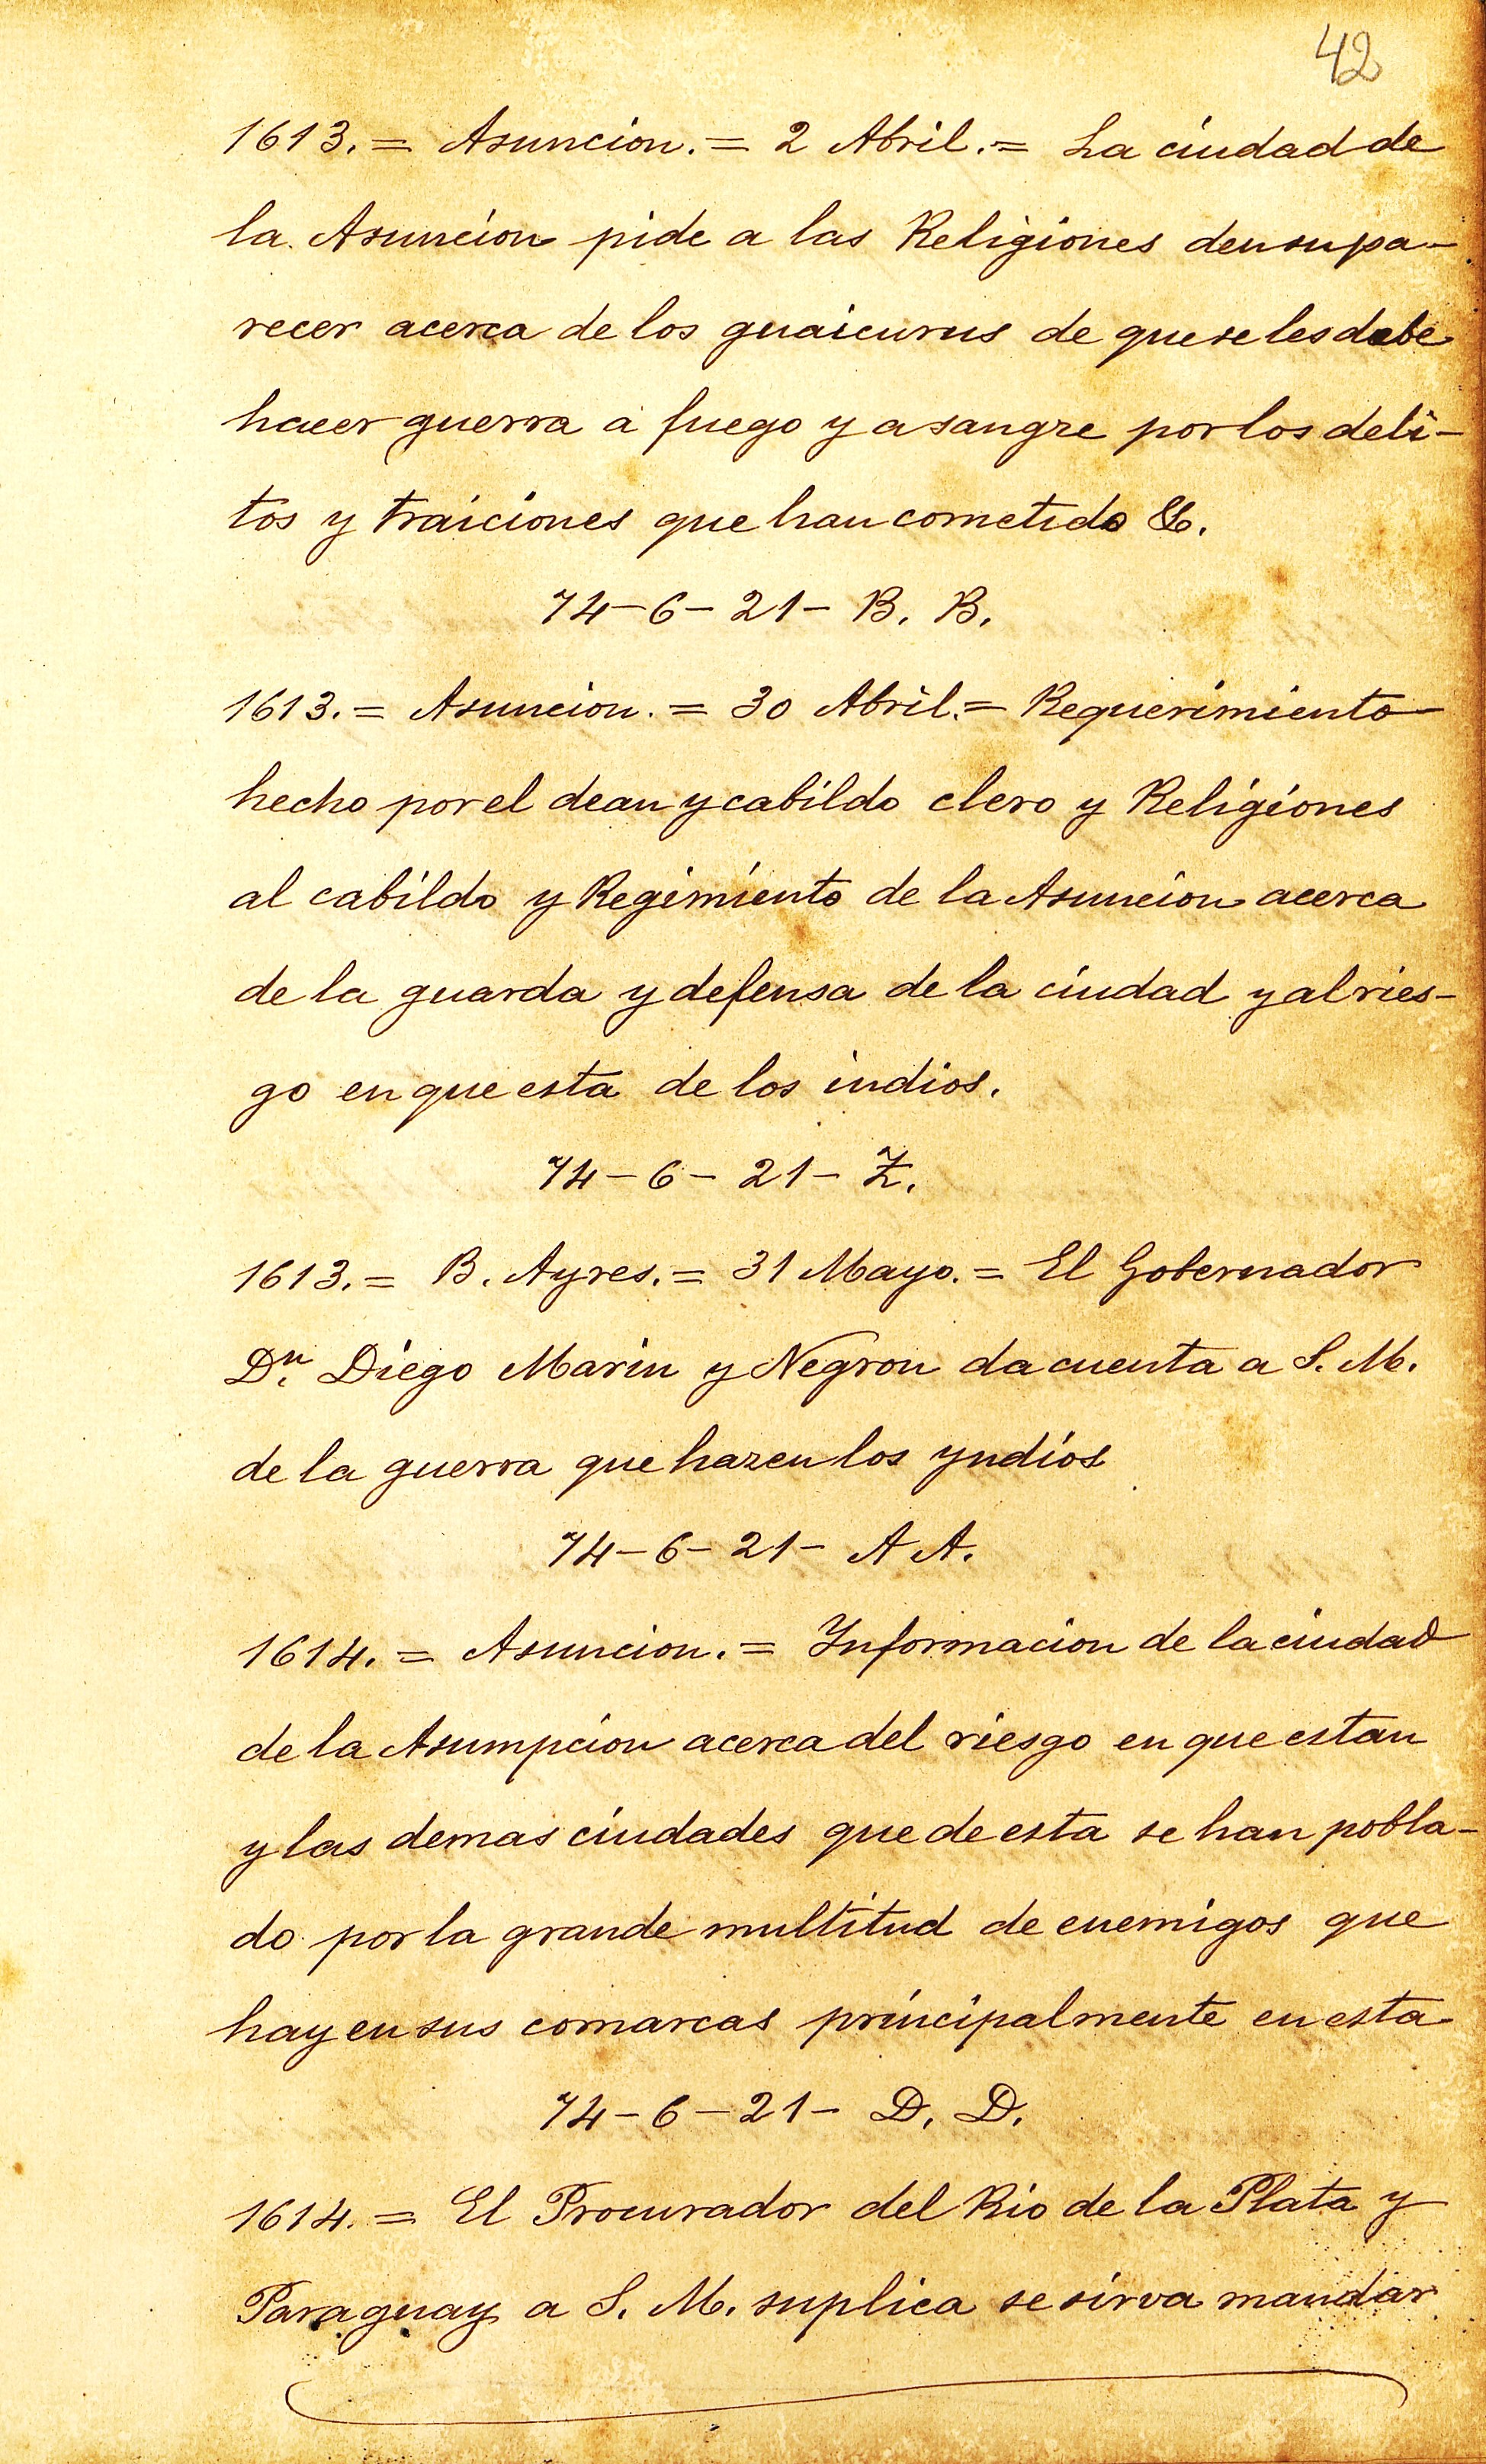 42
1613. = Asuncion. = 2 Abril. = La ciudad de
la Asuncion pide a las Religiones den su pa-
recer acerca de los guaicurus de que se les debe
hacer guerra a fuego y a sangre por los deli-
tos y traiciones que han cometido &.
74-6-21- B. B.
1613. = Asuncion. = 30 Abril. = Requerimiento
hecho por el dean y cabildo clero y Religiones
al cabildo y Regimiento de la Asuncion acerca
de la guarda y defensa de la ciudad y al ries-
go en que esta de los indios.
74-6-21- Z.
1613. = B. Ayres. = 31 Mayo. = El Gobernador
Dn. Diego Marin y Negron da cuenta a S. M.
de la guerra que hazen los yndios
74-6-21- A A.
1614. = Asuncion. = Informacion de la ciudad
de la Asumpcion acerca del riesgo en que estan
y las demas ciudades que de esta se han pobla-
do por la grande multitud de enemigos que
hay en sus comarcas principalmente en esta
74-6-21- D. D.
1614. = El Procurador del Rio de la Plata y
Paraguay a S. M. suplica se sirva mandar